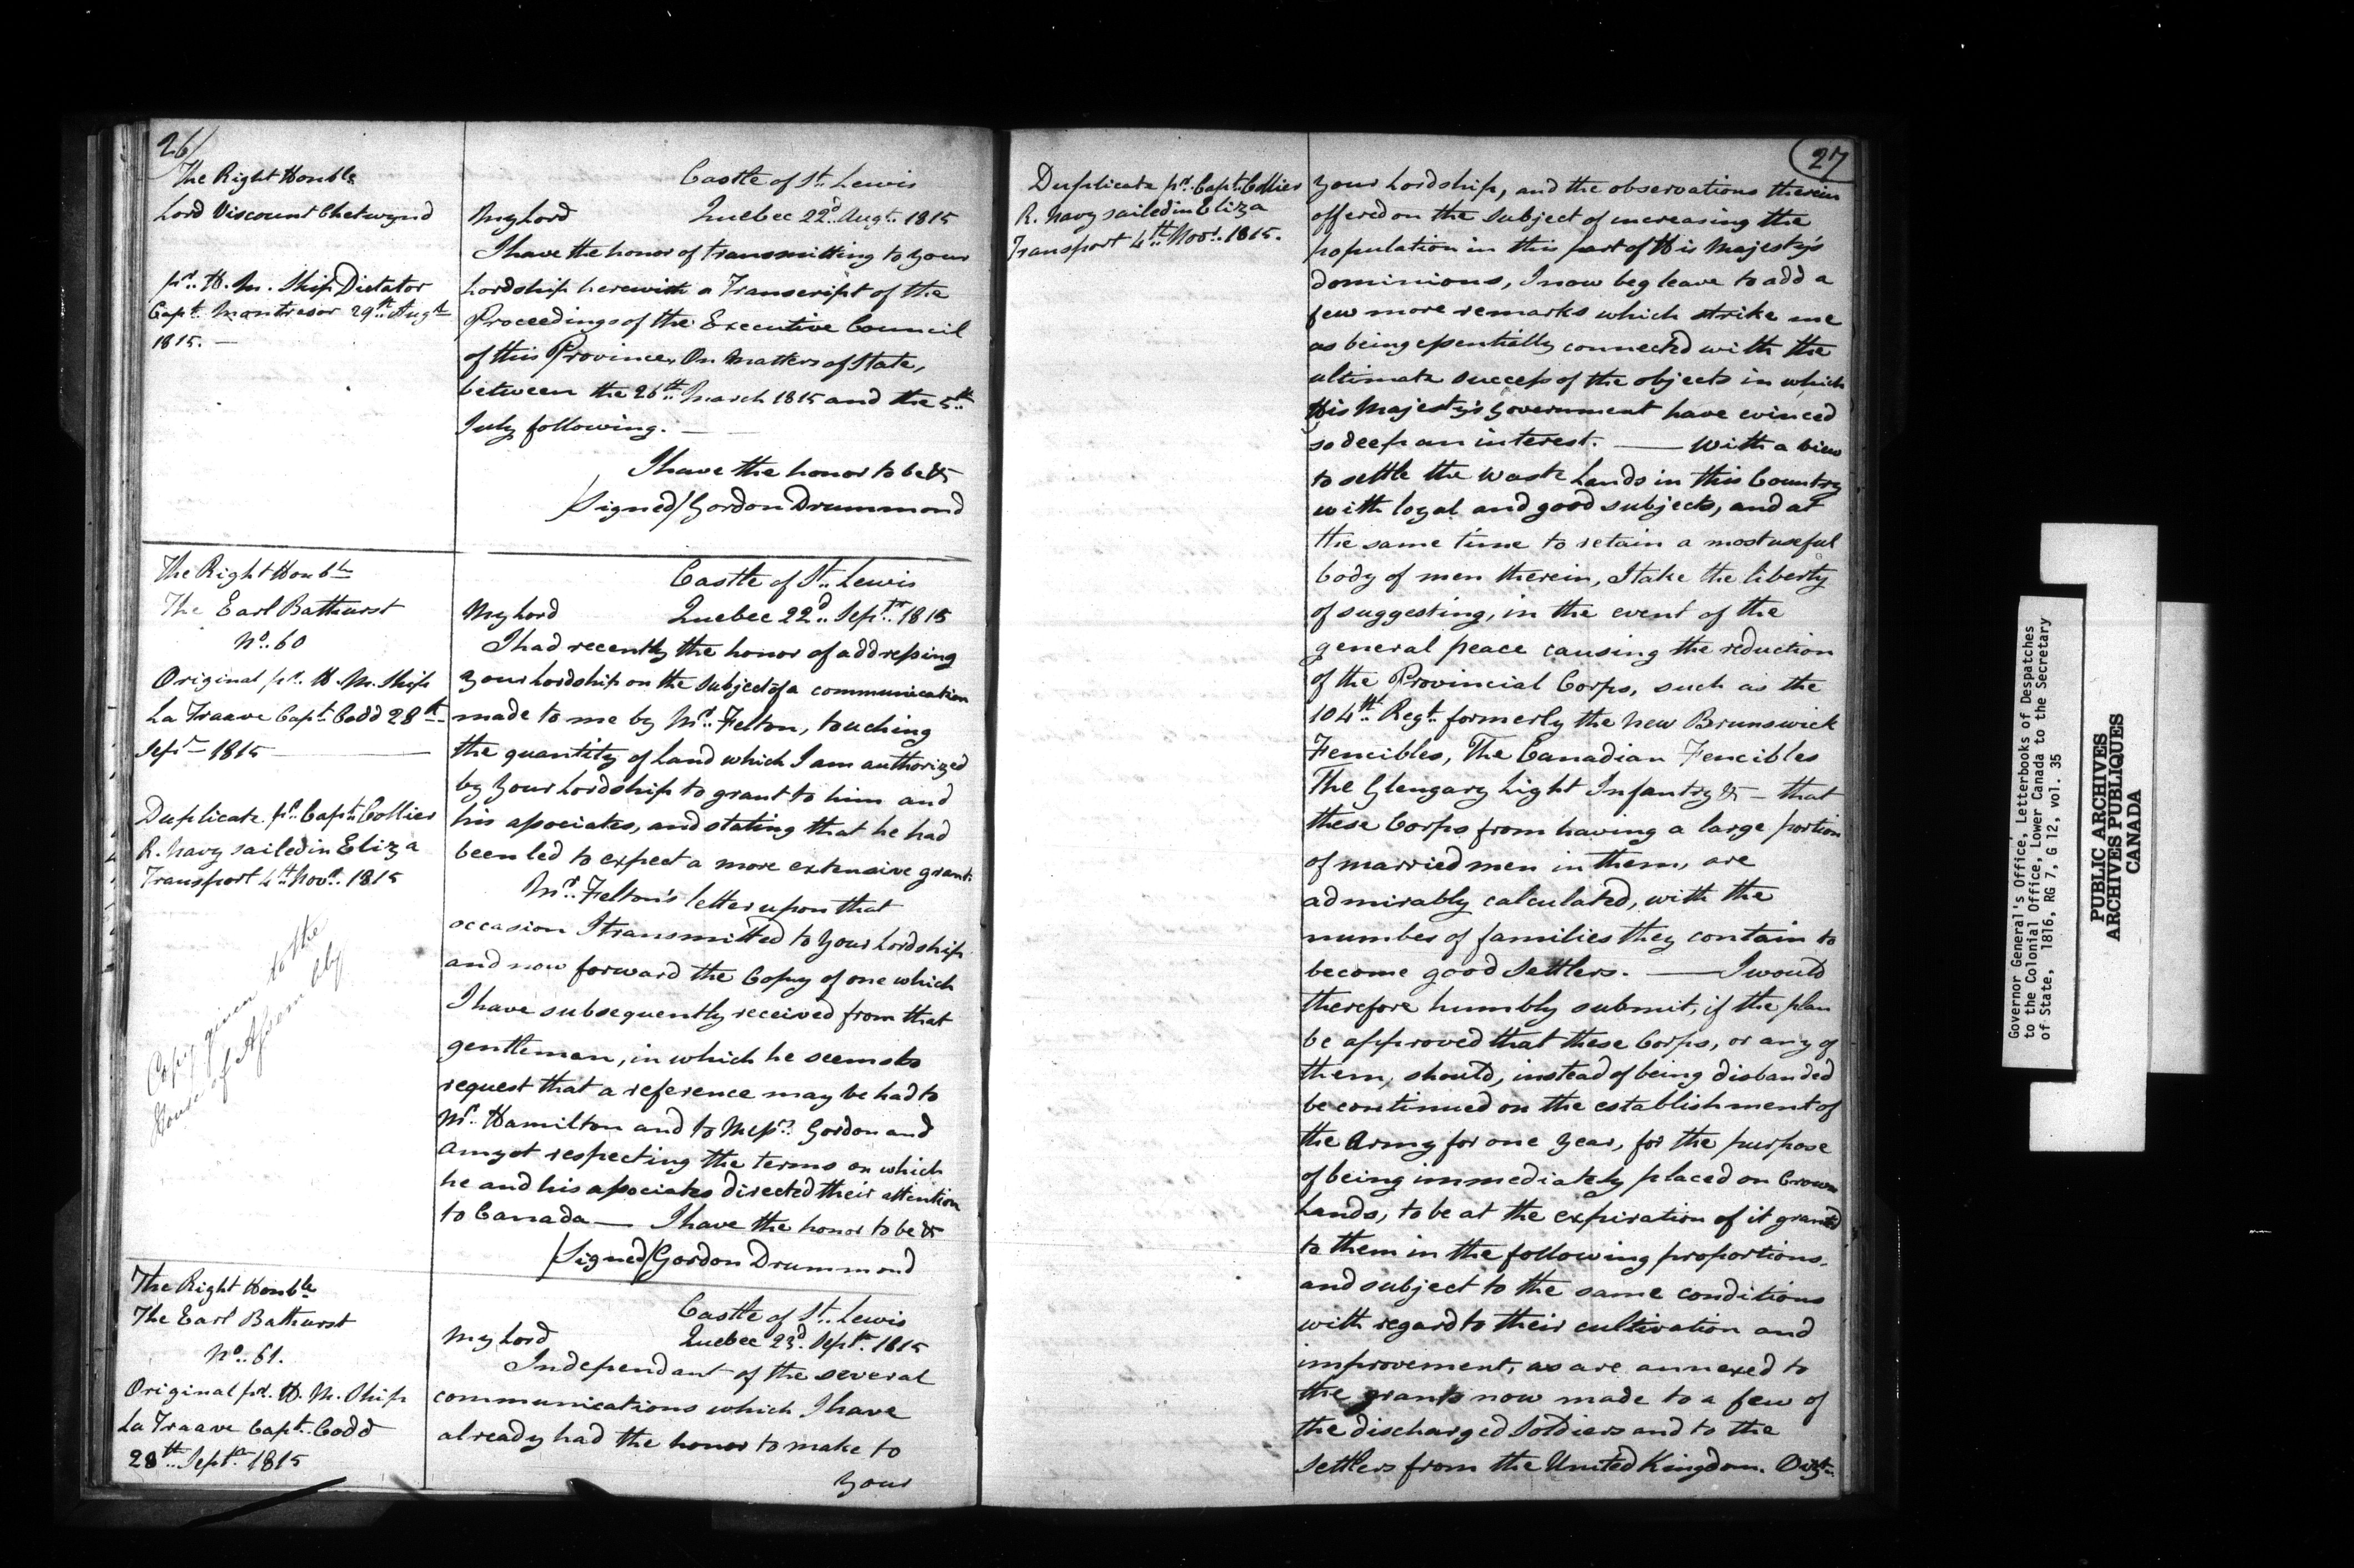 26/
The Right Honble
Lord Viscount Chetwynd
pr. H. M. Ship Dictator
Capt. Montresor 29th Augt
1815. —
Castle of St. Lewis
My Lord Quebec 22d Augt. 1815
I have the honor of transmitting to your
Lordship herewith a Transcript of the
Proceedings of the Executive Council
of this Province, On Matters of State,
between the 26th March 1815 and the 5th
July following. —
I have the honor to be &
/Signed/ Gordon Drummond
The Right Honble
The Earl Bathurst
No. 60
Original pr. H. M. Ship
La Traave Capt. Codd 28th
Sepr 1815 —
Duplicate pr. Capt. Collier
R. Navy sailed in Eliza
Transport 4th Novr. 1815
Copy given to the
House of Assembly
Castle of St. Lewis
My Lord Quebec 22d Septr. 1815
I had recently the honor of addressing
your Lordship on the subject of a communication
made to me by Mr. Felton, touching
the quantity of Land which I am authorized
by your Lordship to grant to him and
his associates, and stating that he had
been led to expect a more extensive grant.
Mr. Felton's letter upon that
occasion I transmitted to your Lordship
and now forward the Copy of one which
I have subsequently received from that
gentleman, in which he seems to
request that a reference may be had to
Mr. Hamilton and to Messrs. Gordon and
Amyot respecting the terms on which
he and his associates directed their attention
to Canada — I have the honor to be &
/Signed/ Gordon Drummond
The Right Honble
The Earl Bathurst
No. 61.
Original pr. H. M. Ship
La Traave Capt. Codd
28th Septr. 1815
Castle of St. Lewis
My Lord Quebec 23d. Septr. 1815
Independant of the several
communications which I have
already had the honor to make to
your
27
Duplicate pr. Capt. Collier
R. Navy sailed in Eliza
Transport 4th Novr. 1815.
your Lordship, and the observations therein
offered on the subject of increasing the
population in this part of His Majesty's
dominions, I now beg leave to add a
few more remarks which strike me
as being essentially connected with the
ultimate success of the objects in which
His Majesty's Government have evinced
so deep an interest. — With a view
to settle the waste Lands in this Country
with loyal and good subjects, and at
the same time to retain a most useful
body of men therein, I take the liberty
of suggesting, in the event of the
general peace causing the reduction
of the Provincial Corps, such as the
104th Regt. formerly the New Brunswick
Fencibles, The Canadian Fencibles
The Glengary Light Infantry & — that
these Corps from having a large portion
of married men in them, are
admirably calculated, with the
number of families they contain to
become good Settlers. — I would
therefore humbly submit, if the plan
be approved that these Corps, or any of
them, should, instead of being disbanded
be continued on the establishment of
the Army for one year, for the purpose
of being immediately placed on Crown
Lands, to be at the expiration of it granted
to them in the following proportions,
and subject to the same conditions
with regard to their cultivation and
improvement, as are annexed to
the grants now made to a few of
the discharged Soldiers and to the
Settlers from the United Kingdom.
Governor General's Office, Letterbooks of Despatches
to the Colonial Office, Lower Canada to the Secretary
of State, 1816, RG 7, G 12, vol. 35
PUBLIC ARCHIVES
ARCHIVES PUBLIQUES
CANADA